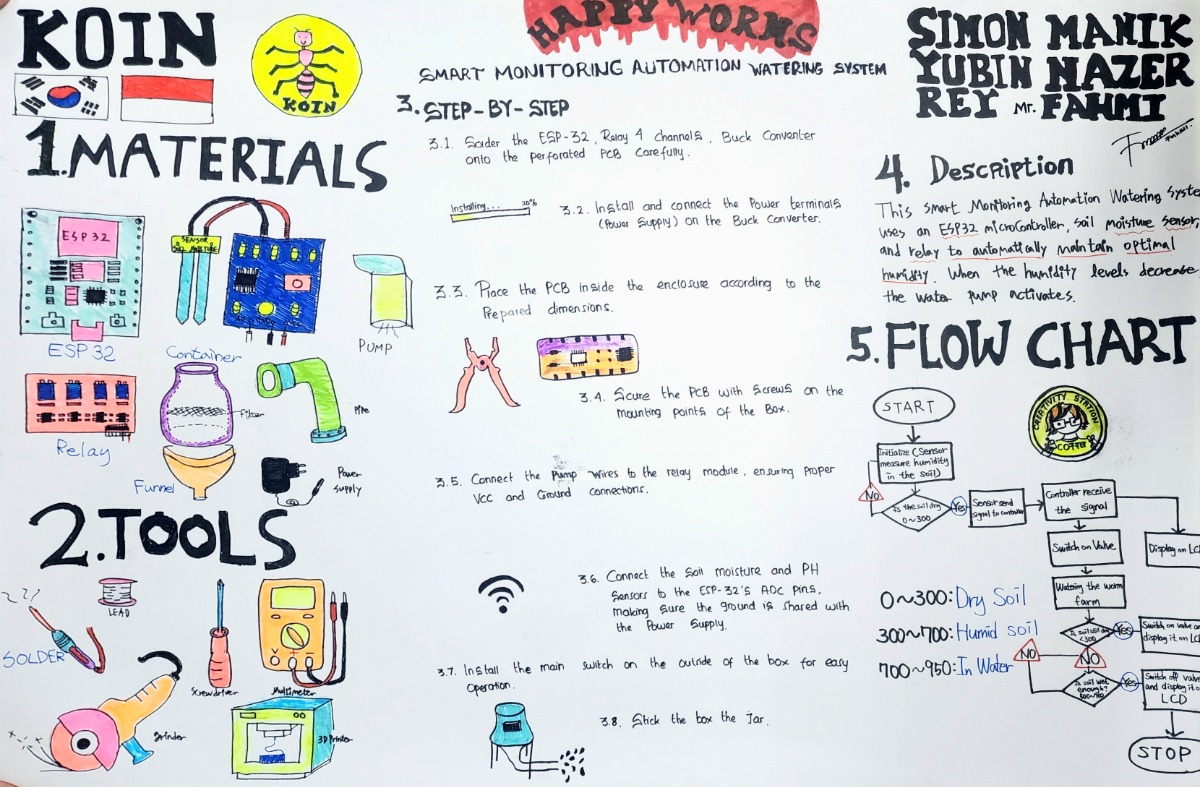 KOIN
KOIN
HAPPY WORMS
SMART MONITORING AUTOMATION WATERING SYSTEM
SIMON MANIK
YUBIN NAZER
REY Mr. FAHMI
1. MATERIALS
ESP 32
ESP 32
SENSOR
SOIL MOISTURE
PUMP
Container
Filter
Pipe
Relay
Funnel
Power
Supply
2. TOOLS
LEAD
SOLDER
Screwdriver
Multimeter
Grinder
3D Printer
3. STEP-BY-STEP
3.1. Solder the ESP-32, Relay 4 channels, Buck Converter
onto the perforated PCB Carefully.
Installing... 20%
3.2. Install and connect the Power terminals
(Power Supply) on the Buck Converter.
3.3. Place the PCB inside the enclosure according to the
Prepared dimensions.
3.4. Scure the PCB with Screws on the
mounting points of the Box.
3.5. Connect the Pump wires to the relay module, ensuring proper
Vcc and Ground connections.
3.6. Connect the Soil moisture and PH
Sensors to the ESP-32's ADC Pins,
making sure the ground is shared with
the Power Supply.
3.7. Install the main switch on the outside of the box for easy
Operation.
3.8. Stick the box the Jar.
4. Description
This smart Monitoring Automation Watering Syste
uses an ESP32 microController, soil moisture sensor,
and relay to automatically maintain optimal
humidity. When the humidity levels decrease
the water pump activates.
5. FLOW CHART
CREATIVITY STATION
START
Initialize (Sensor
measure humidity
in the soil)
NO
Is the soil dry
0~300
Yes
Sensor send
signal to controller
Controller receive
the signal
Switch on Valve
Display on LC
Watering the worm
farm
Yes
Switch on valve
display it on LC
NO
NO
Is soil wet
enough?
Yes
Switch off valve
and display it o
LCD
STOP
0~300: Dry Soil
300~700: Humid soil
700~950: In Water